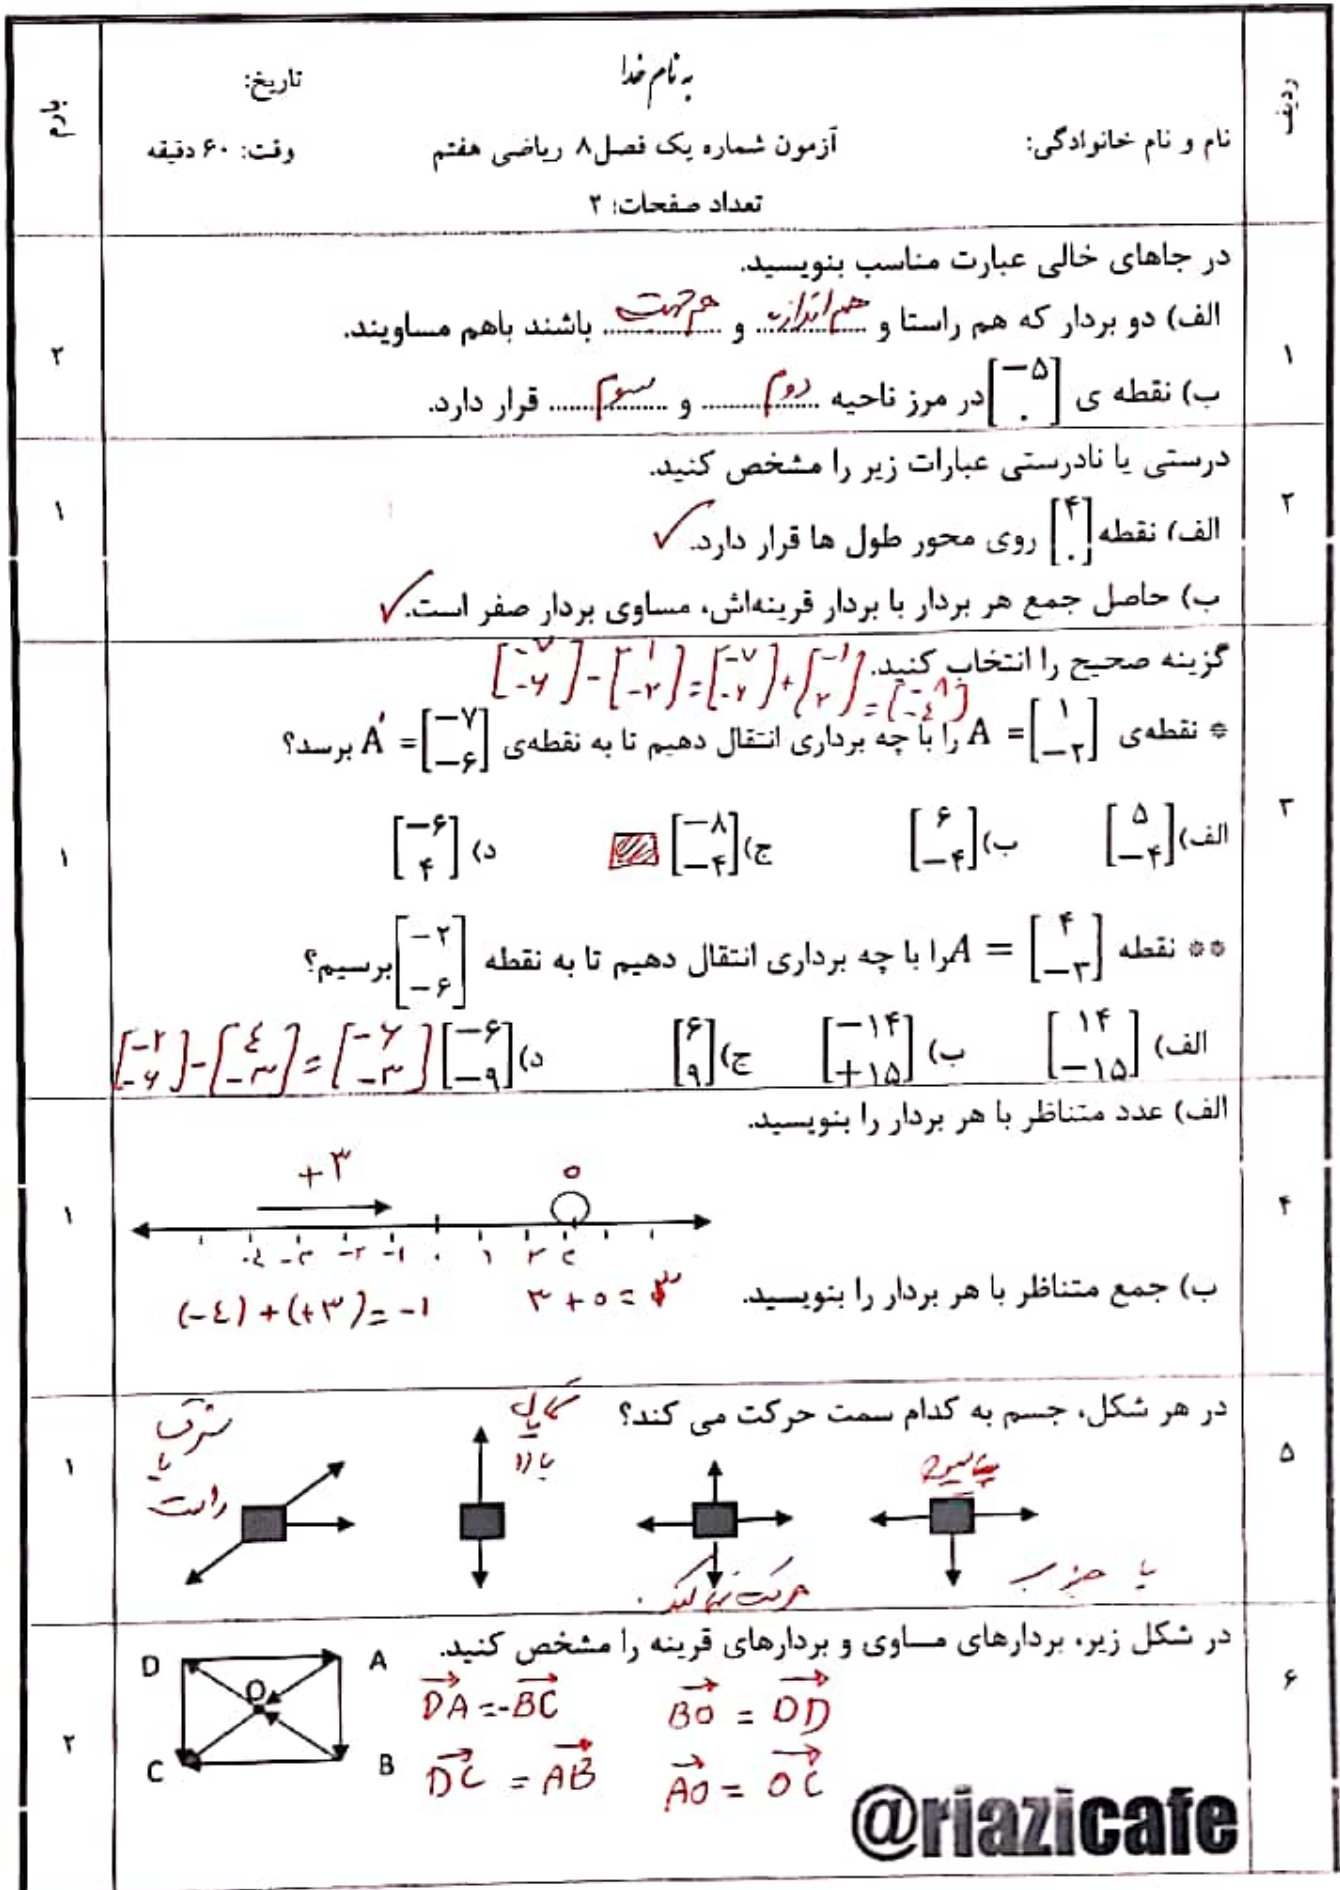 ردیف
بارم
به نام خدا
تاریخ:
نام و نام خانوادگی:
آزمون شماره یک فصل۸ ریاضی هفتم
وقت: ۶۰ دقیقه
تعداد صفحات: ۲
۱
در جاهای خالی عبارت مناسب بنویسید.
الف) دو بردار که هم راستا و هم اندازه و هم جهت باشند باهم مساویند.
ب) نقطه ی [−۵ ۰] در مرز ناحیه دوم و سوم قرار دارد.
۲
۲
درستی یا نادرستی عبارات زیر را مشخص کنید.
الف) نقطه [۴ ۰] روی محور طول ها قرار دارد. ✓
ب) حاصل جمع هر بردار با بردار قرینه‌اش، مساوی بردار صفر است. ✓
۱
۳
گزینه صحیح را انتخاب کنید.
[−۷ −۶] − [۱ −۲] = [−۷ −۶] + [−۱ ۲] = [−۸ −٤]
* نقطه‌ی A = [۱ −۲] را با چه برداری انتقال دهیم تا به نقطه‌ی A' = [−۷ −۶] برسد؟
الف) [۵ −۴] ب) [۶ −۴] ج) [−۸ −۴] د) [−۶ ۴]
۱
** نقطه A = [۴ −۳] را با چه برداری انتقال دهیم تا به نقطه [−۲ −۶] برسیم؟
الف) [۱۴ −۱۵] ب) [−۱۴ +۱۵] ج) [۶ ۹] د) [−۶ −۹]
[−۲ −۶] − [٤ −۳] = [−۶ −۳]
۴
الف) عدد متناظر با هر بردار را بنویسید.
+۳
۰
-٤ -۳ -۲ -۱ ۰ ۱ ۲ ۳
۱
ب) جمع متناظر با هر بردار را بنویسید.
۳ + ۰ = ۳
(-٤) + (+۳) = -۱
۵
در هر شکل، جسم به کدام سمت حرکت می کند؟
پایین
یا جنوب
حرکت نمی کند.
شمال
یا
بالا
شرق
یا
راست
۱
۶
در شکل زیر، بردارهای مساوی و بردارهای قرینه را مشخص کنید.
D A
O
C B
DA = -BC
BO = OD
DC = AB
AO = OC
۲
@riazicafe